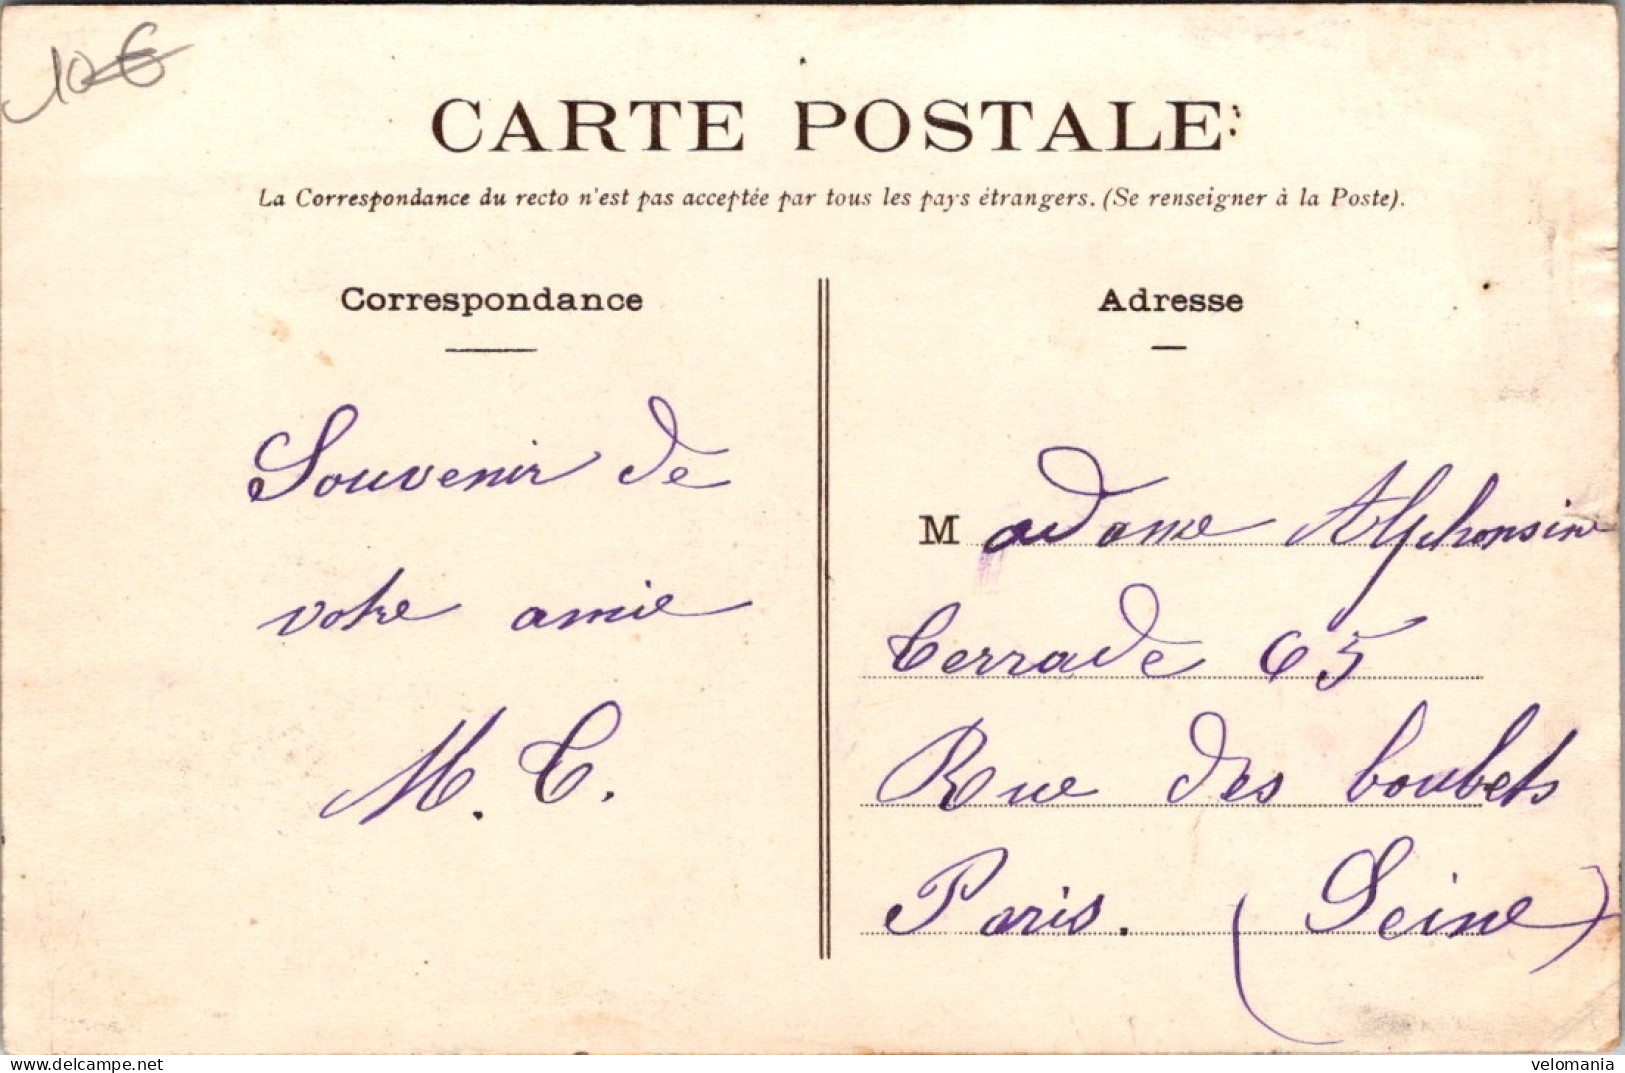 10€
CARTE POSTALE
La Correspondance du recto n'est pas acceptée par tous les pays étrangers. (Se renseigner à la Poste).
Correspondance
Souvenir de
votre amie
M. C.
Adresse
Madame Alphonsine
Cerrade 65
Rue des boubets
Paris. (Seine)
delcampe.net
velomania